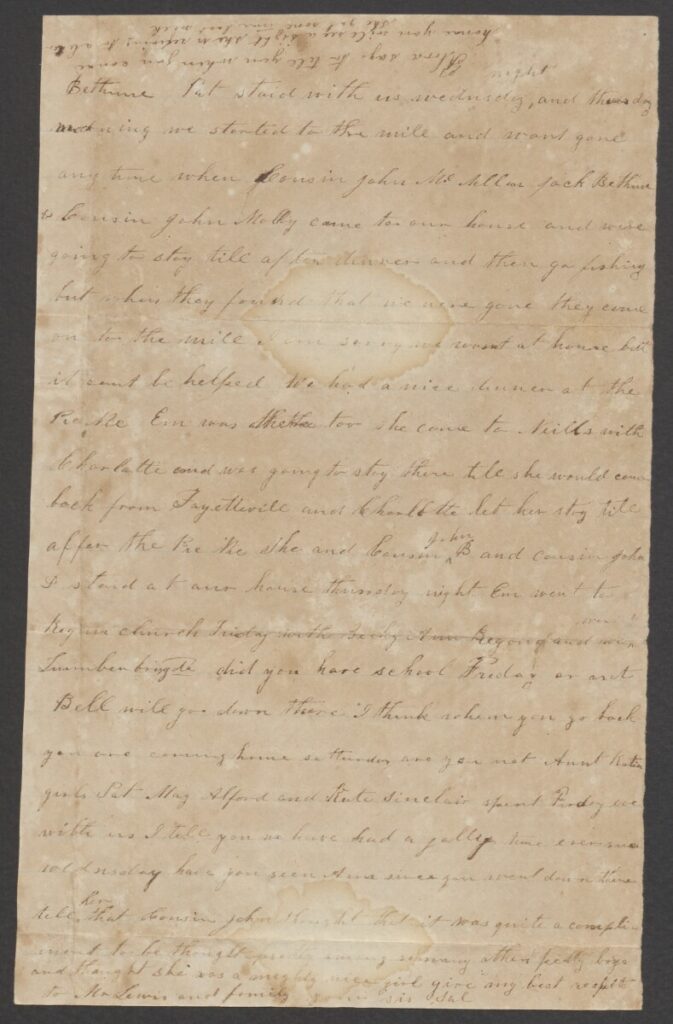 Flora says to tell you when you come
home you will see a sight she is
she got some last week
night
Bethune Sat staid with us wednesday and thursday
morning we started to the mill and wont gone
any time when Cousin John Mc Allan Jack Bethune
& Cousin John Molly came to our house and were
going to stay till after dinner and then go fishing
but when they found that we were gone they come
on to the mill I am sorry we wasnt at house but
it cant be helped We had a nice dinner at the
Pic Nic Em was there too she come to Neills with
Charlotte and was going to stay there till she would come
back from Fayetteville and Charlotte let her stay till
after the Pic Nic She and Cousin John B and cousin John
staid at our house thursday night Em went to
church Friday with Becky Ann and
Lumber bridge did you have school Friday or not
Bell will go down there I think when you go back
you are coming home satturday are you not Aunt
girls Sat May Alford and Kate Sinclair spent Friday eve
with us I tell you we have had a jolly time ever since
wednesday have you seen Ann since you went down there
tell her that Cousin John thought that it was quite a compli-
ment to be thought pretty among so many other pretty boys
and thought she was a mighty nice girl give my best respects
to Mr Lewis and family your sis Sal